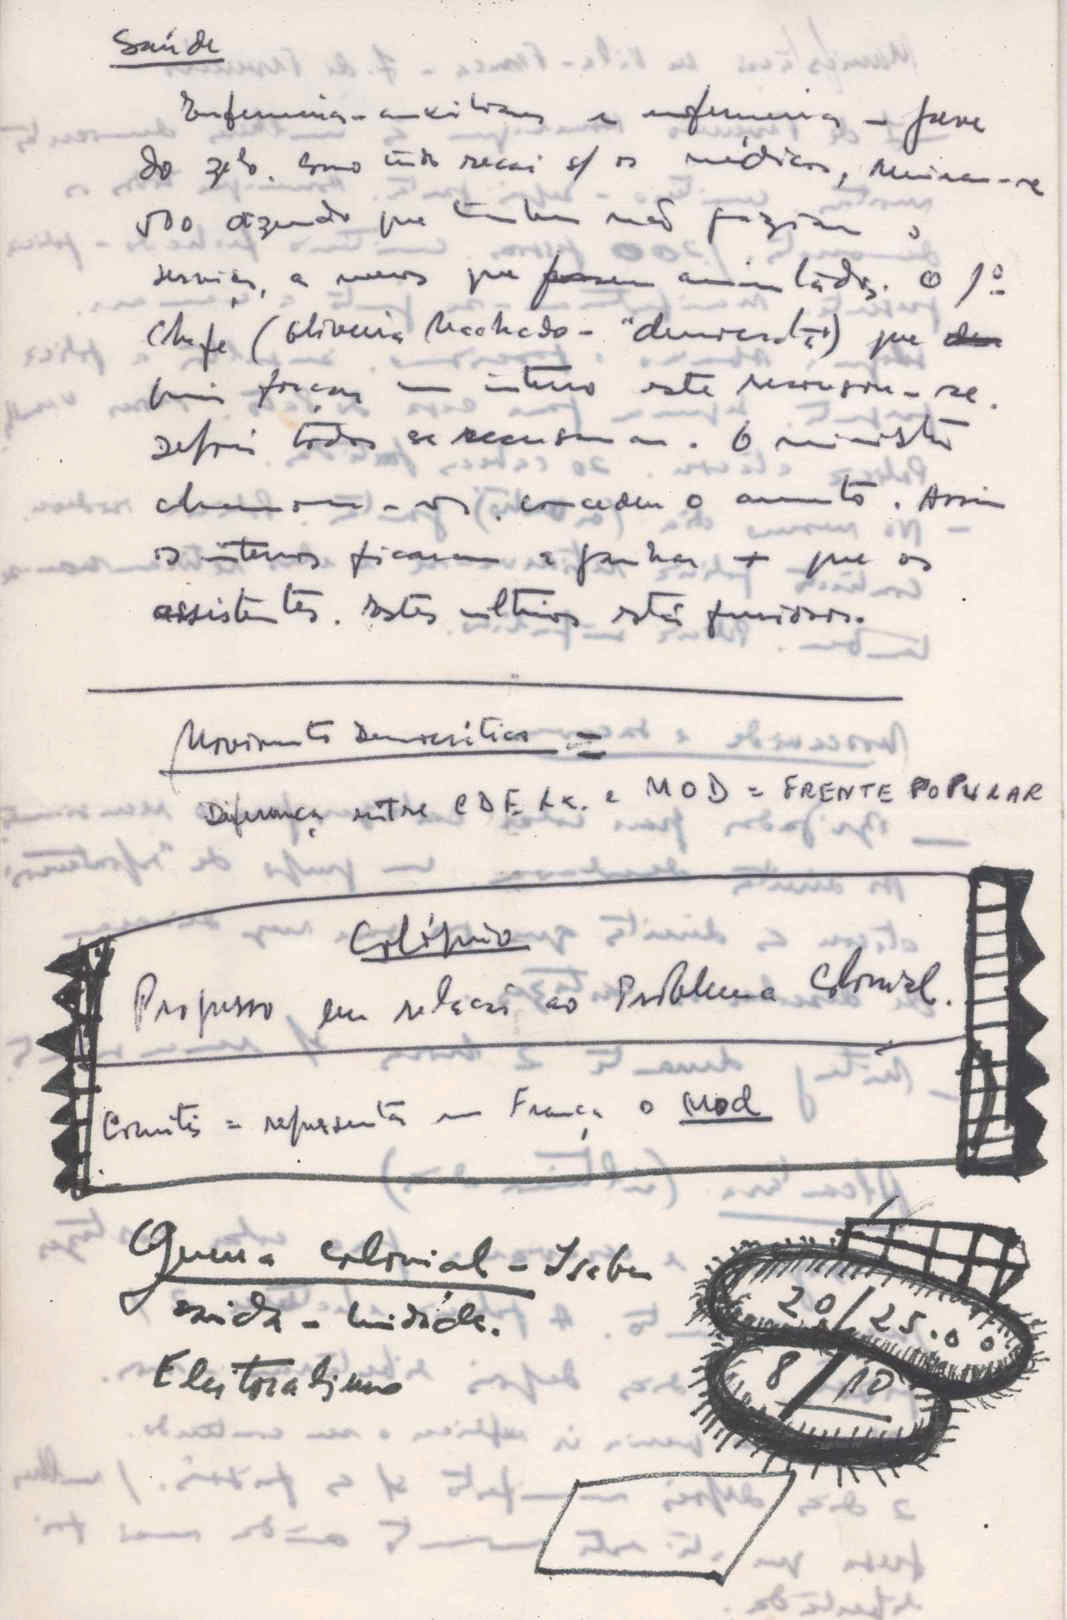 Saúde
Enfermeiras-auxiliares e enfermeiras - Greve
do zelo. Como tudo recai s/ os médicos, reuniram-se
dizendo que também não faziam o
serviço, a menos que fossem aumentados. O 1º
Chefe (Oliveira Machado - "democrata") que
quis forçar um interno este recusou-se.
Depois todos se recusaram. O ministro
chamou-os, concedeu o aumento. Assim
os internos ficaram a ganhar + que os
assistentes. Estes últimos estão furiosos.
Movimento Democrático =
Diferença entre CDE Lx. e MOD = FRENTE POPULAR
Colóquio
Progresso em relação ao Problema Colonial.
Comités = representa em França o MOD
Guerra colonial - Isabel
saída - unidade.
Eleitoralismo
20/25.00
8/10